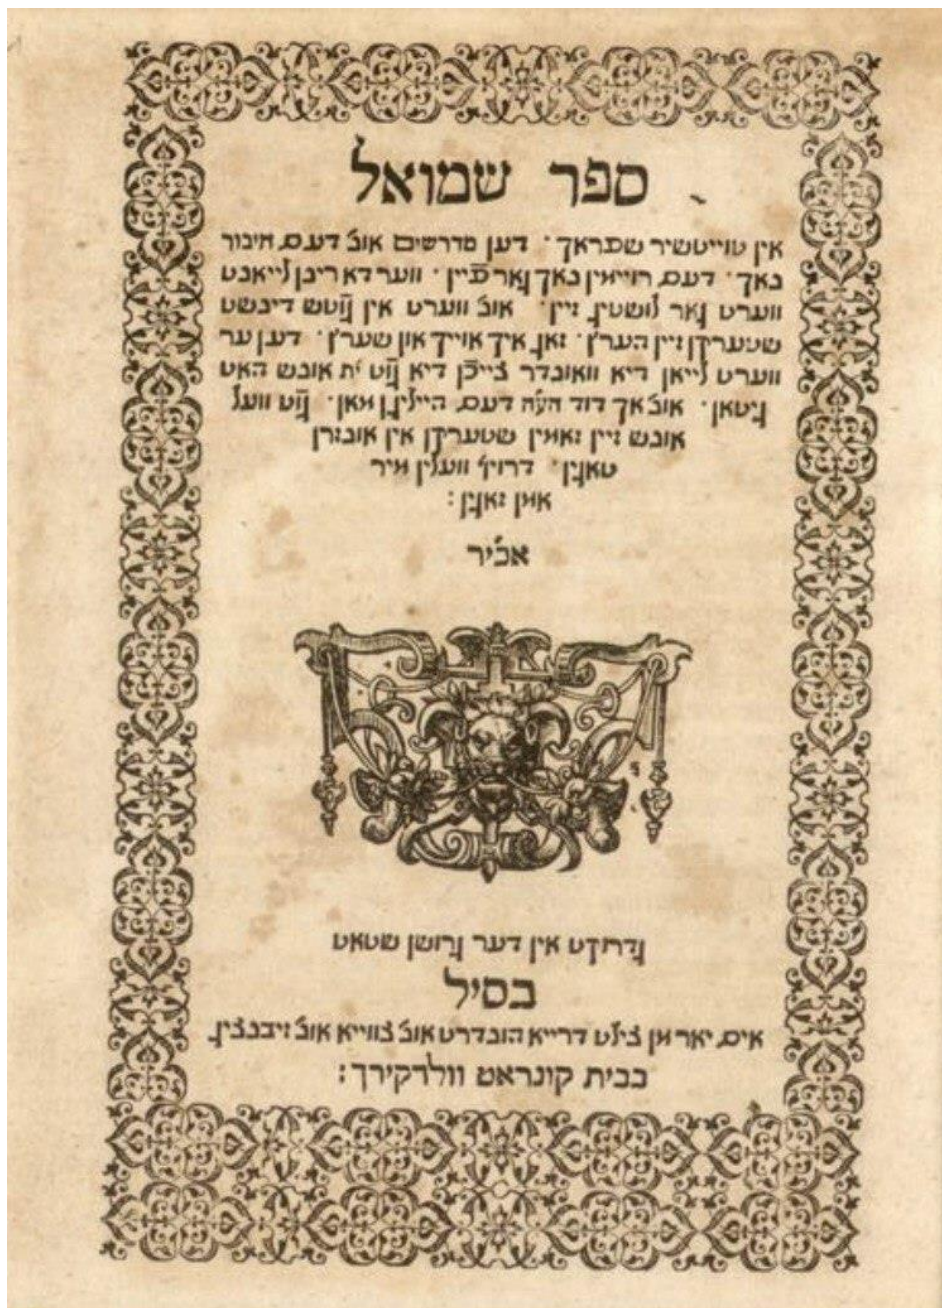 ספר שמואל
אין טוייטשיר שפראך · דען מדרשים אונ' דעם חיבור
נאך · דעם רוייאין נאך גאר פֿיין · ווער דארינן לייאנט
ווערט גאר לושטיג זיין · אונ' ווערט אין גֿוטש דינשט
שטערקן זיין הערץ · זאג איך אוייך און שערץ · דען ער
ווערט לייאן דיא וואונדר צייכֿן דיא גֿוט ית' אונש האט
גיטאן · אונ' אך דוד הע"ה דעם היילגין מאן · גֿוט וועל
אונש זיין זאמין שטערקן אין אונזרן
טאגין · דרויף וועלין מיר
אמן זאגין :
אכי"ר
גדרוקט אין דער גרושן שטאט
בסיל
אים יאר מן צילט דרייא הונדרט אונ' צווייא אונ' זיבנצין
בבית קונראט וולדקירך :